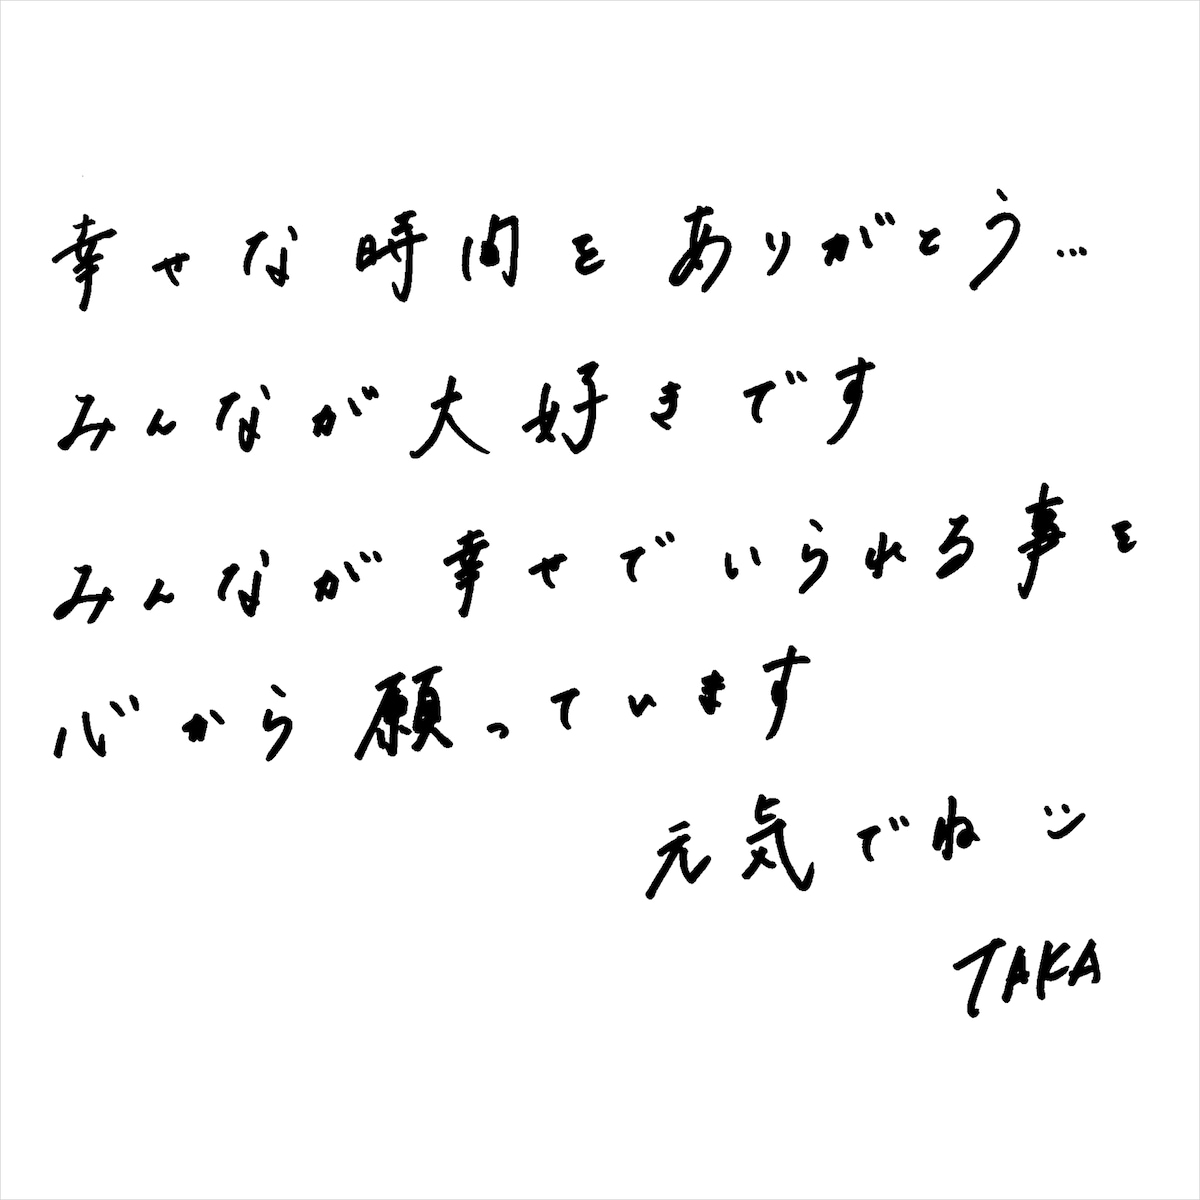 幸せな時間をありがとう…
みんなが大好きです
みんなが幸せでいられる事を
心から願っています
元気でね
TAKA